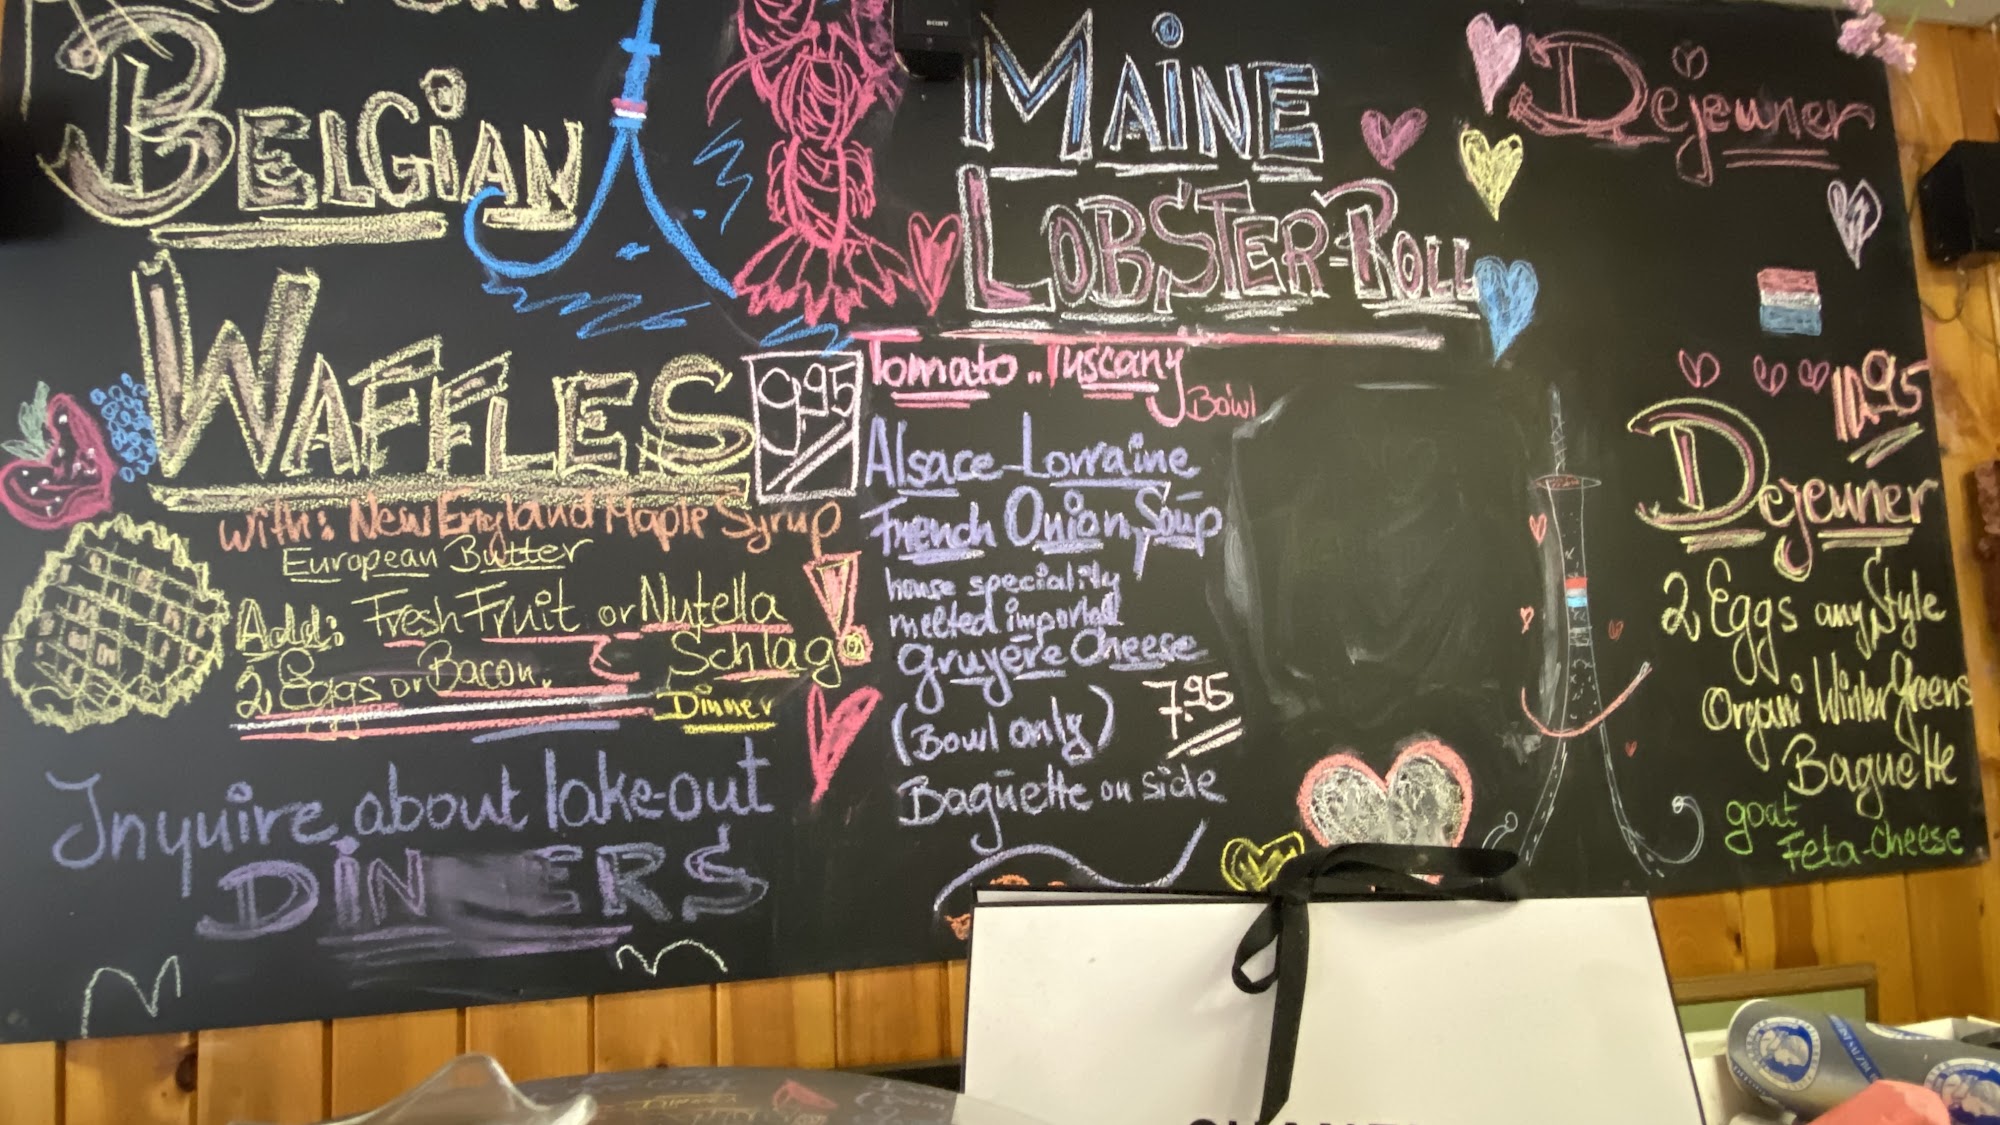 BELGiAN
WAFFLES
9.95
with: New England Maple Syrup
European Butter
Add: Fresh Fruit or Nutella
Schlag
2 Eggs or Bacon.
Dinner
Inquire about take-out
DiN ERS
SONY
MAiNE
LOBSTER-ROLL
Tomato..Tuscany
Bowl
Alsace-Lorraine
French Onion Soup
house speciality
melted imported
gruyére Cheese
(Bowl only) 7.95
Baguette on side
Dejeuner
10.95
Dejeuner
2 Eggs any Style
Organi Winter Greens
Baguette
goat
Feta-Cheese